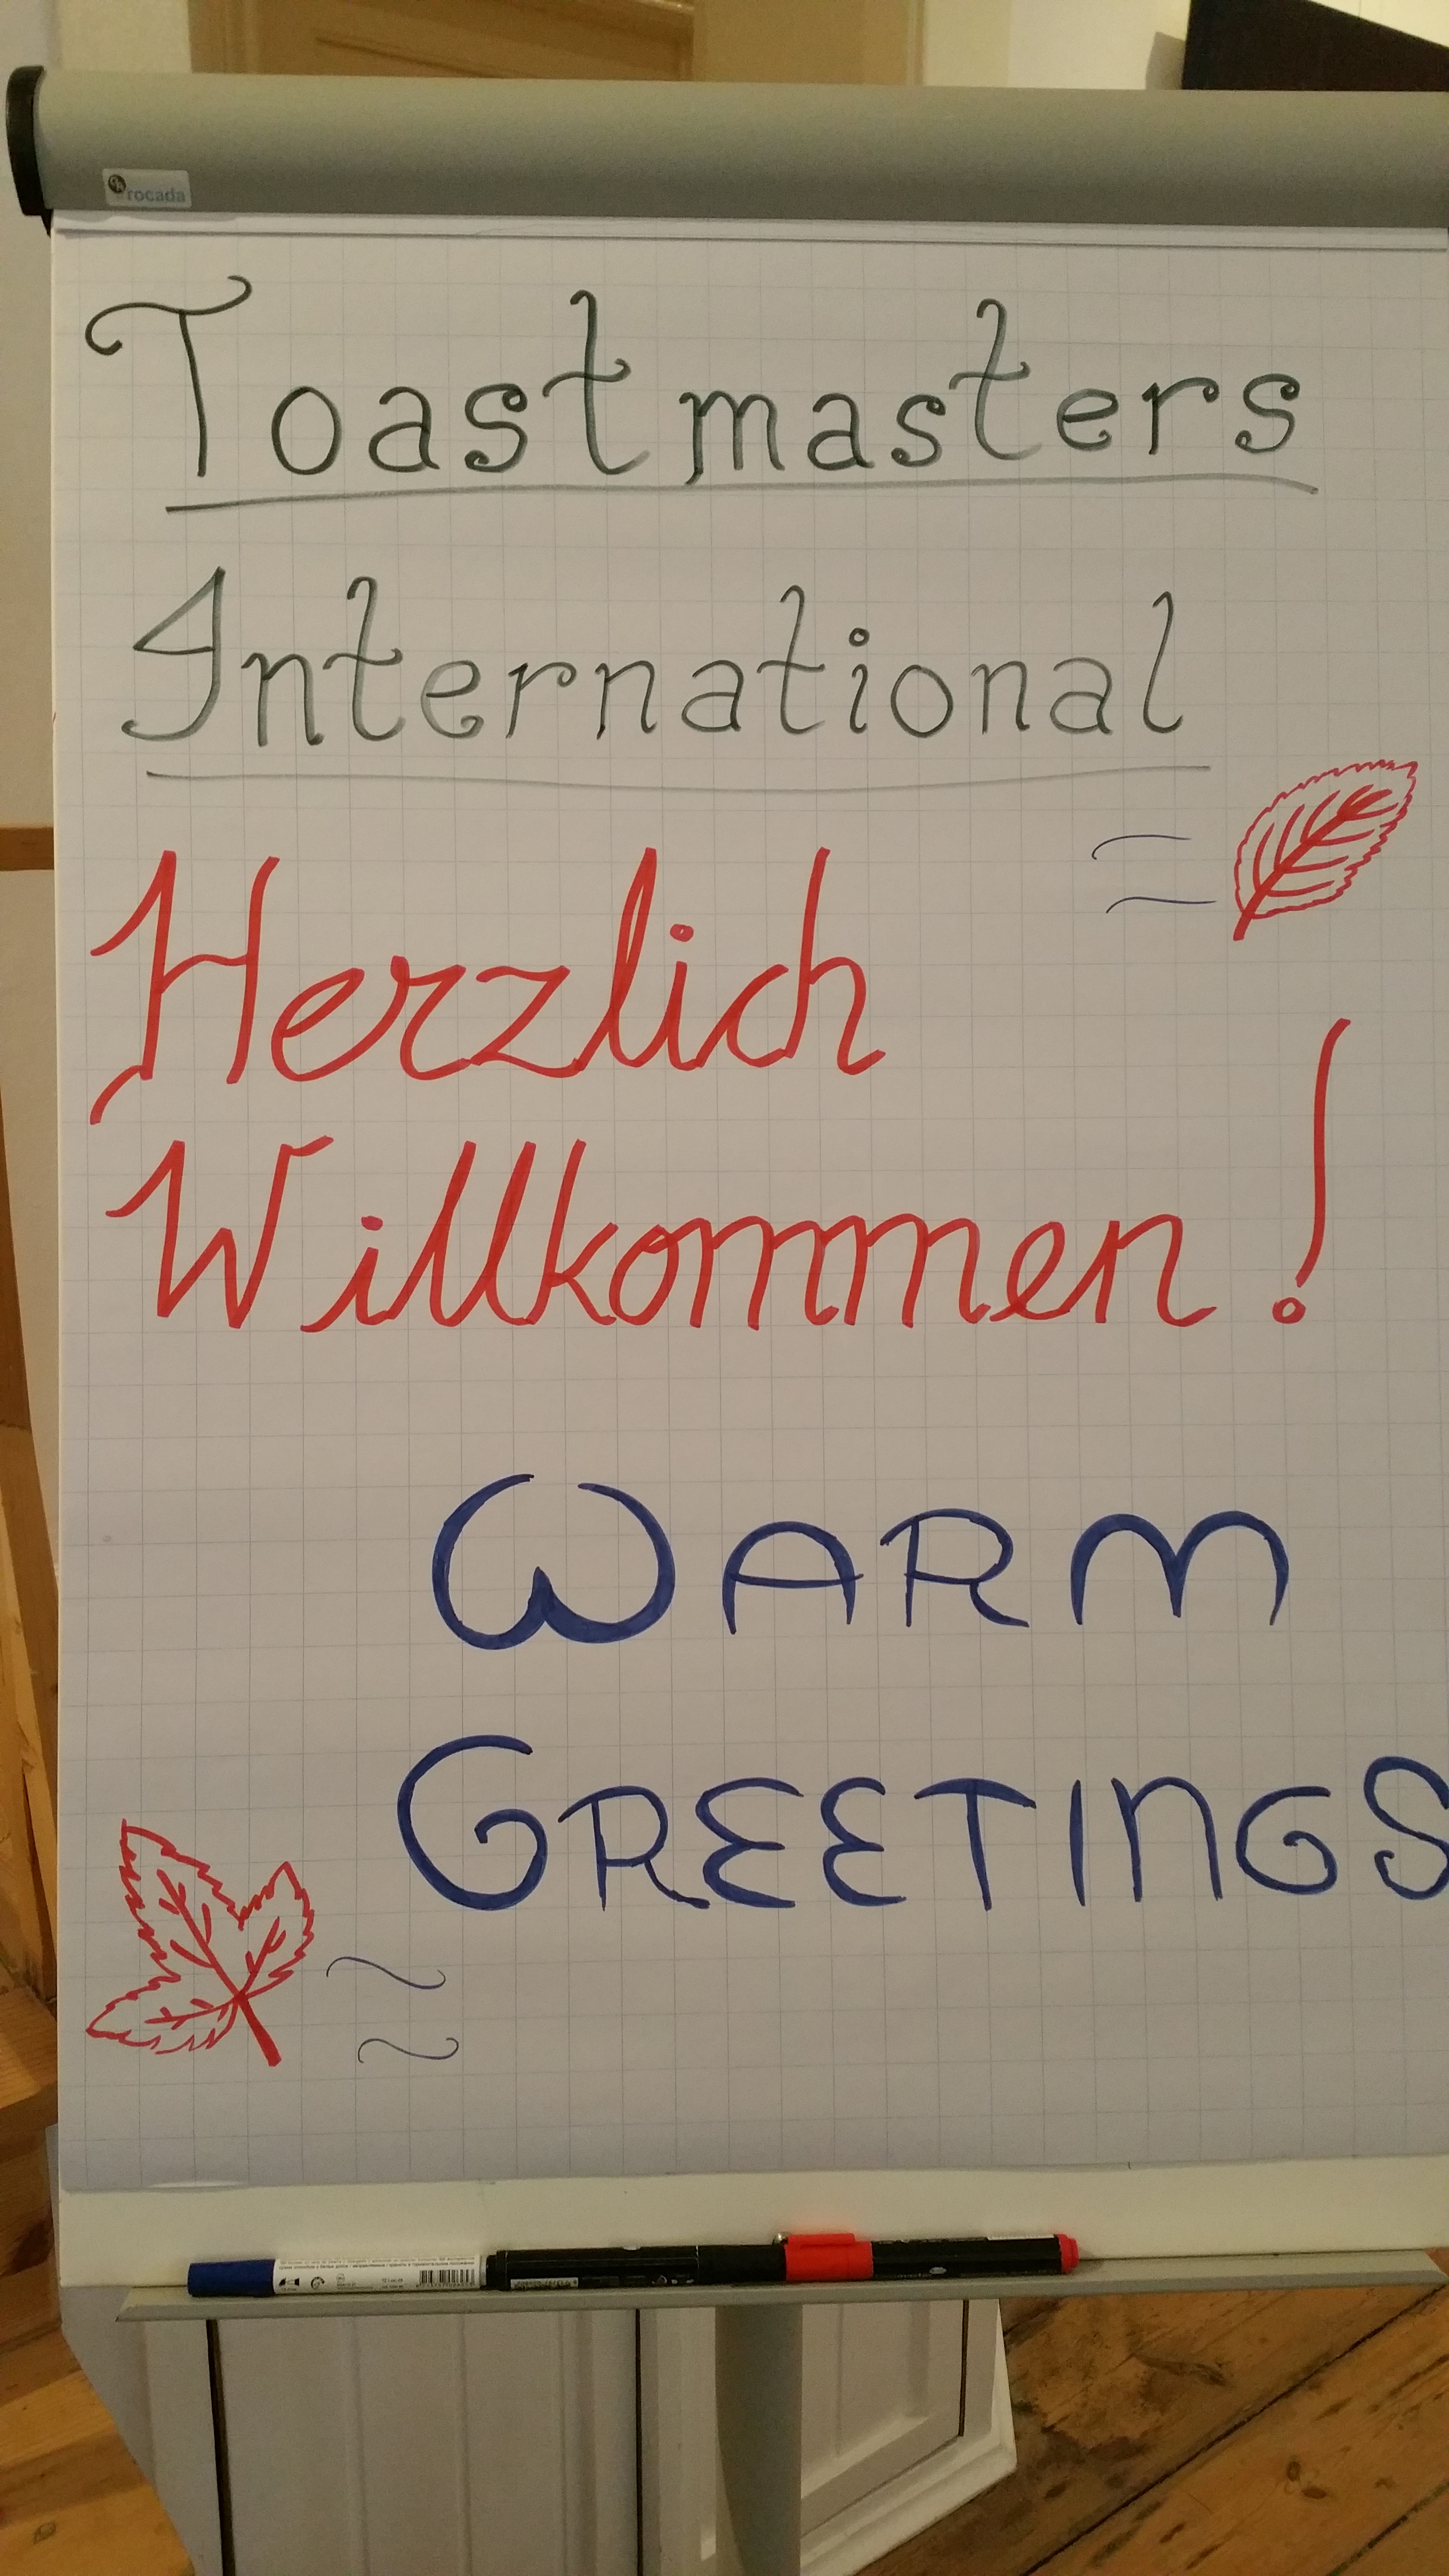 rocada
Toastmasters
International
Herzlich
Willkommen!
WARM
GREETINGS